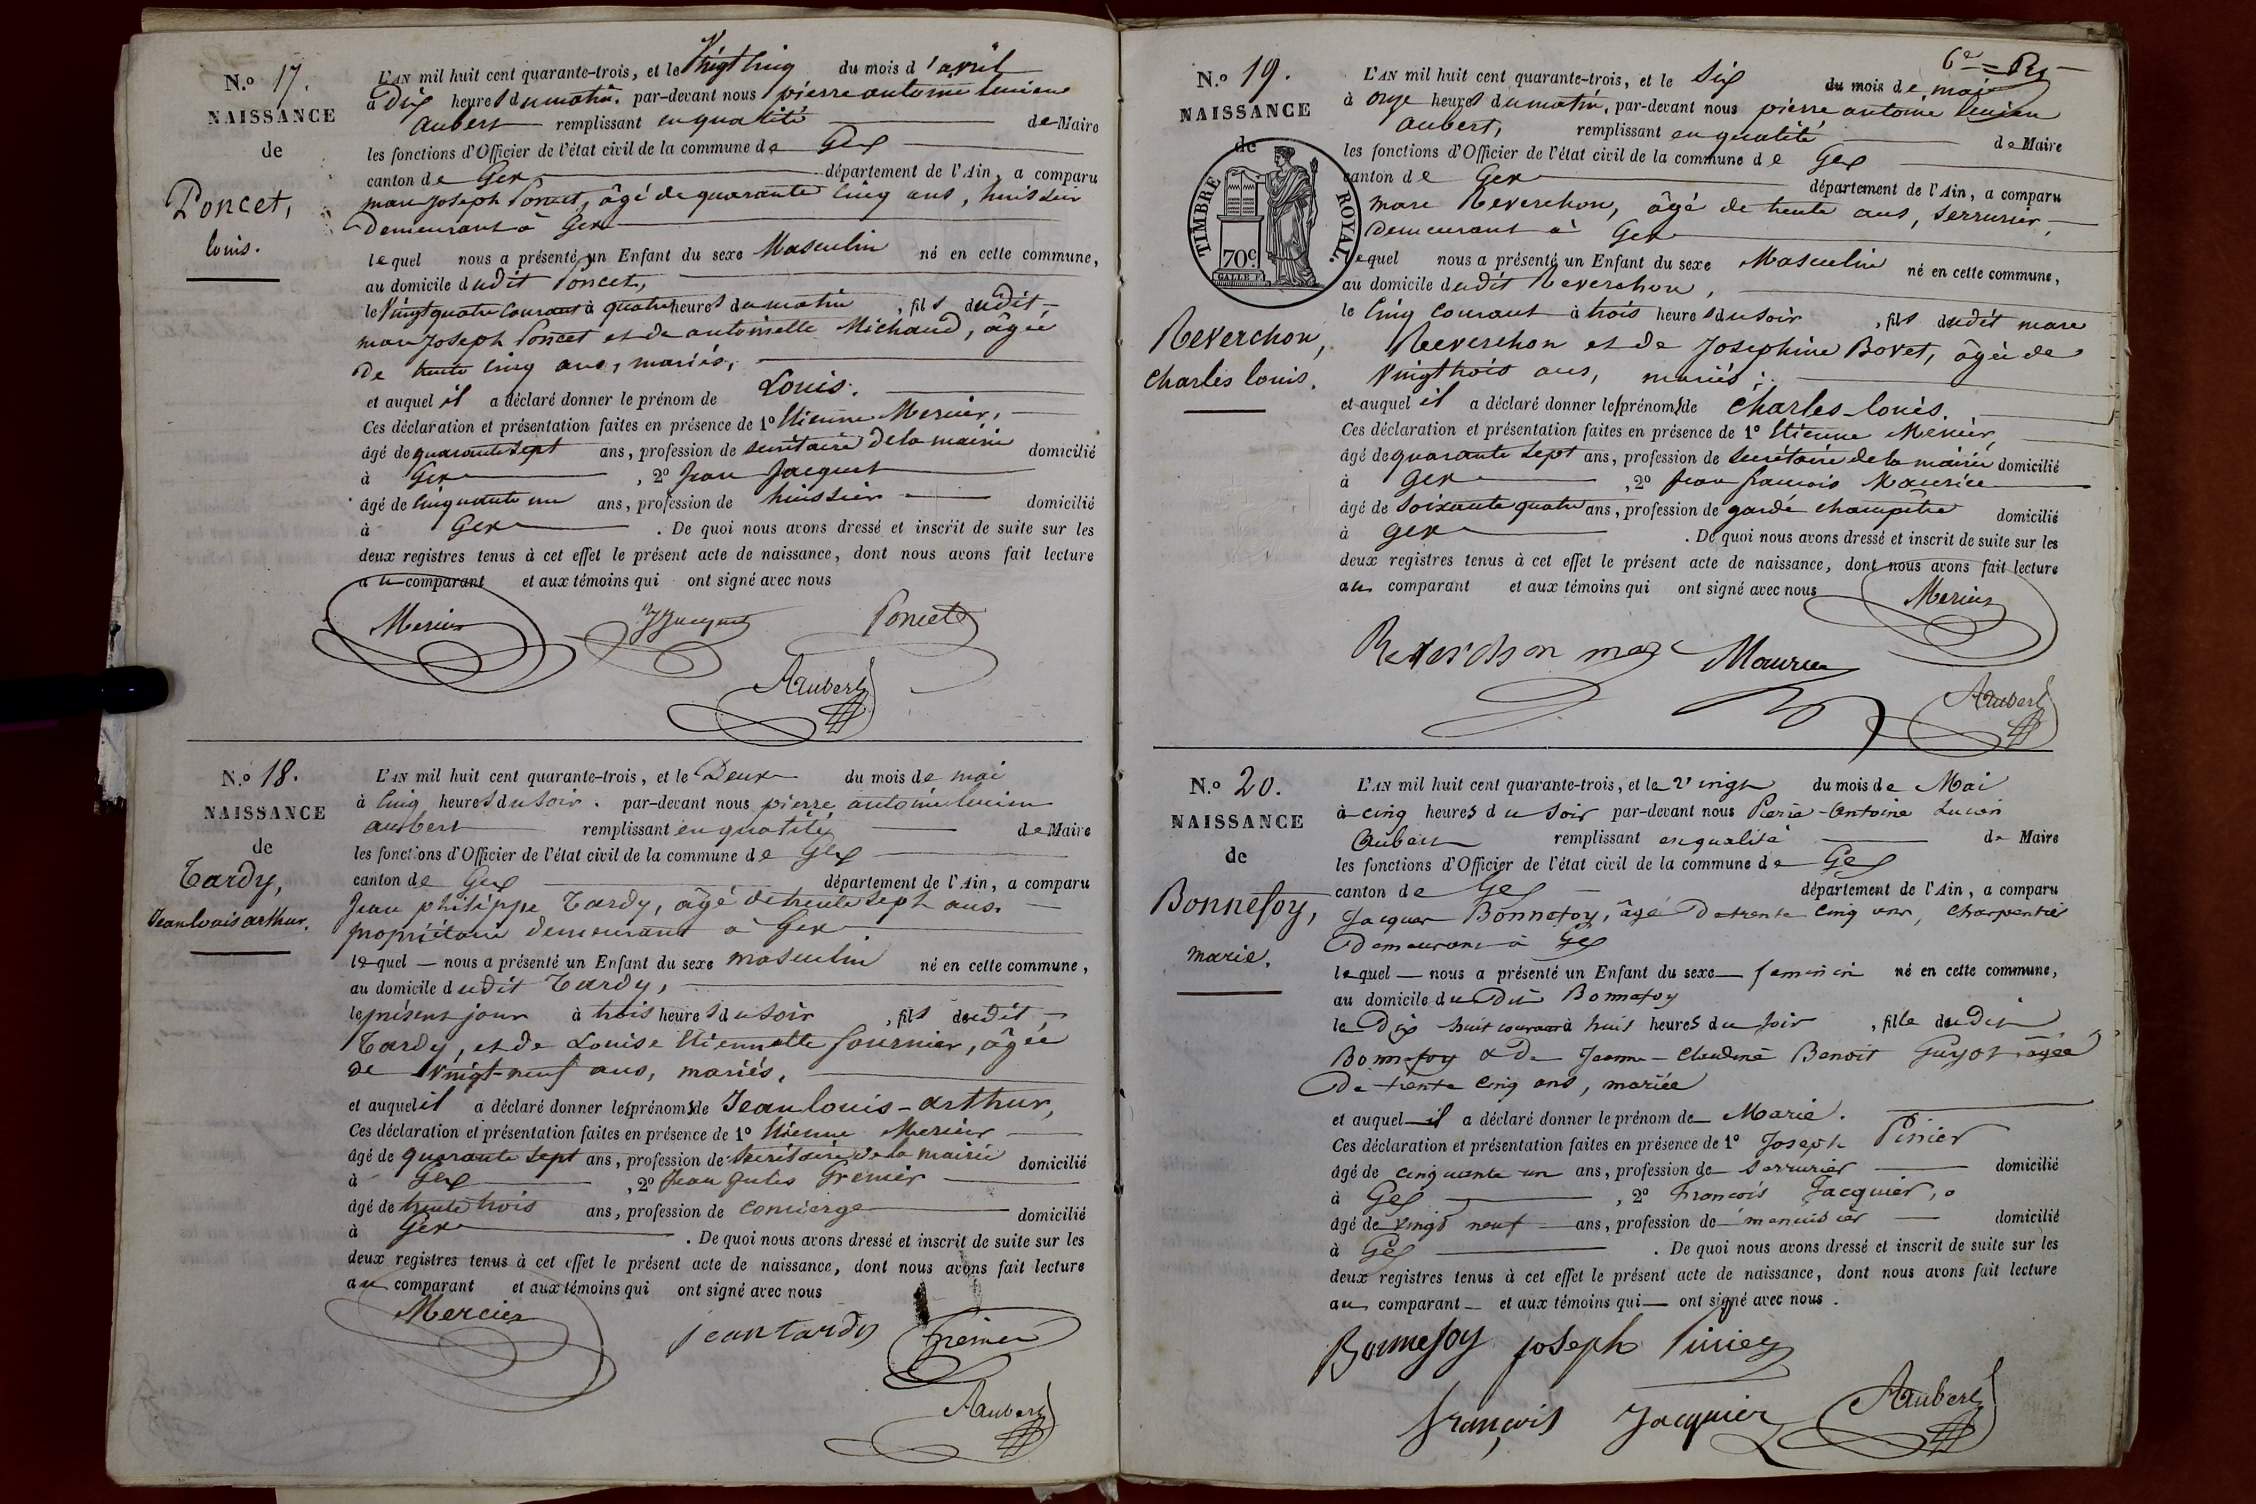 N.º 17.
NAISSANCE
de
Poncet,
louis.
L'AN mil huit cent quarante-trois, et le Vingt cinq du mois d'avril
à Dix heures du matin. par-devant nous pierre antoine lucien
aubert remplissant en qualité de Maire
les fonctions d'Officier de l'état civil de la commune de Gex
canton de Gex département de l'Ain, a comparu
marc Joseph Poncet, âgé de quarante cinq ans, huissier
Demeurant à Gex
lequel nous a présenté un Enfant du sexe Masculin né en cette commune,
au domicile dudit Poncet,
le Vingt quatre Courant à quatre heures du matin, fils dudit
marc Joseph Poncet et de antoinette Michaud, âgée
de trente cinq ans, mariés,
et auquel il a déclaré donner le prénom de Louis.
Ces déclaration et présentation faites en présence de 1º Etienne Mercier,
âgé de quarante sept ans, profession de secrétaire de la mairie domicilié
à Gex, 2º Jean Jacquet
âgé de cinquante un ans, profession de huissier domicilié
à Gex. De quoi nous avons dressé et inscrit de suite sur les
deux registres tenus à cet effet le présent acte de naissance, dont nous avons fait lecture
au comparant et aux témoins qui ont signé avec nous
Mercier Jacquet Poncet
Aubert
N.º 18.
NAISSANCE
de
Tardy,
Jean louis arthur.
L'AN mil huit cent quarante-trois, et le Deux du mois de mai
à Cinq heures du soir. par-devant nous pierre antoine lucien
aubert remplissant en qualité de Maire
les fonctions d'Officier de l'état civil de la commune de Gex
canton de Gex département de l'Ain, a comparu
Jean philippe Tardy, âgé de trente sept ans,
propriétaire demeurant à Gex
lequel nous a présenté un Enfant du sexe masculin né en cette commune,
au domicile dudit Tardy,
le présent jour à trois heures du soir, fils dudit
Tardy, et de Louise Etiennette fournier, âgée
de Vingt-neuf ans, mariés,
et auquel il a déclaré donner les prénoms de Jean louis-arthur,
Ces déclaration et présentation faites en présence de 1º Etienne Mercier
âgé de quarante sept ans, profession de secrétaire de la mairie domicilié
à Gex, 2º Jean Jules Grenier
âgé de trente trois ans, profession de concierge domicilié
à Gex. De quoi nous avons dressé et inscrit de suite sur les
deux registres tenus à cet effet le présent acte de naissance, dont nous avons fait lecture
au comparant et aux témoins qui ont signé avec nous
Mercier jean tardy Grenier
Aubert
6e
N.º 19.
NAISSANCE
de
TIMBRE ROYAL.
70c.
Reverchon,
Charles louis.
L'AN mil huit cent quarante-trois, et le Six du mois de mai
à onze heures du matin, par-devant nous pierre antoine lucien
aubert, remplissant en qualité de Maire
les fonctions d'Officier de l'état civil de la commune de Gex
canton de Gex département de l'Ain, a comparu
marc Reverchon, âgé de trente ans, serrurier,
demeurant à Gex
lequel nous a présenté un Enfant du sexe Masculin né en cette commune,
au domicile dudit Reverchon,
le Cinq Courant à trois heures du soir, fils dudit marc
Reverchon et de Josephine Bovet, âgée de
Vingt trois ans, mariés;
et auquel il a déclaré donner les prénoms de Charles-louis.
Ces déclaration et présentation faites en présence de 1º Etienne Mercier,
âgé de quarante sept ans, profession de secrétaire de la mairie domicilié
à Gex, 2º Jean francois Maurice
âgé de soixante quatre ans, profession de garde champêtre domicilié
à Gex. De quoi nous avons dressé et inscrit de suite sur les
deux registres tenus à cet effet le présent acte de naissance, dont nous avons fait lecture
au comparant et aux témoins qui ont signé avec nous
Mercier
Reverchon marc Maurice
Aubert
N.º 20.
NAISSANCE
de
Bonnefoy,
marie.
L'AN mil huit cent quarante-trois, et le vingt du mois de Mai
à cinq heures du soir par-devant nous Pierre-Antoine Lucien
Aubert remplissant en qualité de Maire
les fonctions d'Officier de l'état civil de la commune de Gex
canton de Gex département de l'Ain, a comparu
Jacques Bonnefoy, âgé de trente cinq ans, charpentier
Demeurant à Gex
lequel nous a présenté un Enfant du sexe feminin né en cette commune,
au domicile du dit Bonnefoy
le Dix huit courant à huit heures du soir, fille du dit
Bonnefoy & de Jeanne-Claudine Benoit Guyot âgée
De trente cinq ans, mariée
et auquel il a déclaré donner le prénom de Marie.
Ces déclaration et présentation faites en présence de 1º Joseph Pinier
âgé de cinquante un ans, profession de serrurier domicilié
à Gex, 2º François Jacquier,
âgé de vingt neuf ans, profession de menuisier domicilié
à Gex. De quoi nous avons dressé et inscrit de suite sur les
deux registres tenus à cet effet le présent acte de naissance, dont nous avons fait lecture
au comparant et aux témoins qui ont signé avec nous.
Bonnefoy joseph Pinier
françois Jacquier Aubert